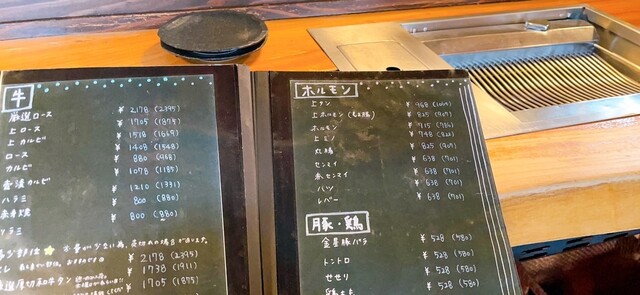 牛
厳選ロース ¥2178 (2395)
上ロース ¥1705 (1875)
上カルビ ¥1518 (1669)
ロース ¥1408 (1548)
カルビ ¥880 (968)
壺漬カルビ ¥1078 (1185)
ハラミ ¥1210 (1331)
¥800 (880)
¥800 (880)
¥2178 (2395)
¥1738 (1911)
厚切和牛タン ¥1705 (1875)
ホルモン
上タン ¥968
上ホルモン ¥825 (907)
ホルモン ¥715
上ミノ ¥748 (822)
丸腸 ¥825 (907)
センマイ ¥638 (701)
赤センマイ ¥638 (701)
ハツ ¥638 (701)
レバー ¥638 (701)
豚・鶏
金星豚バラ ¥528 (580)
トントロ ¥528 (580)
せせり ¥528 (580)
¥528 (580)